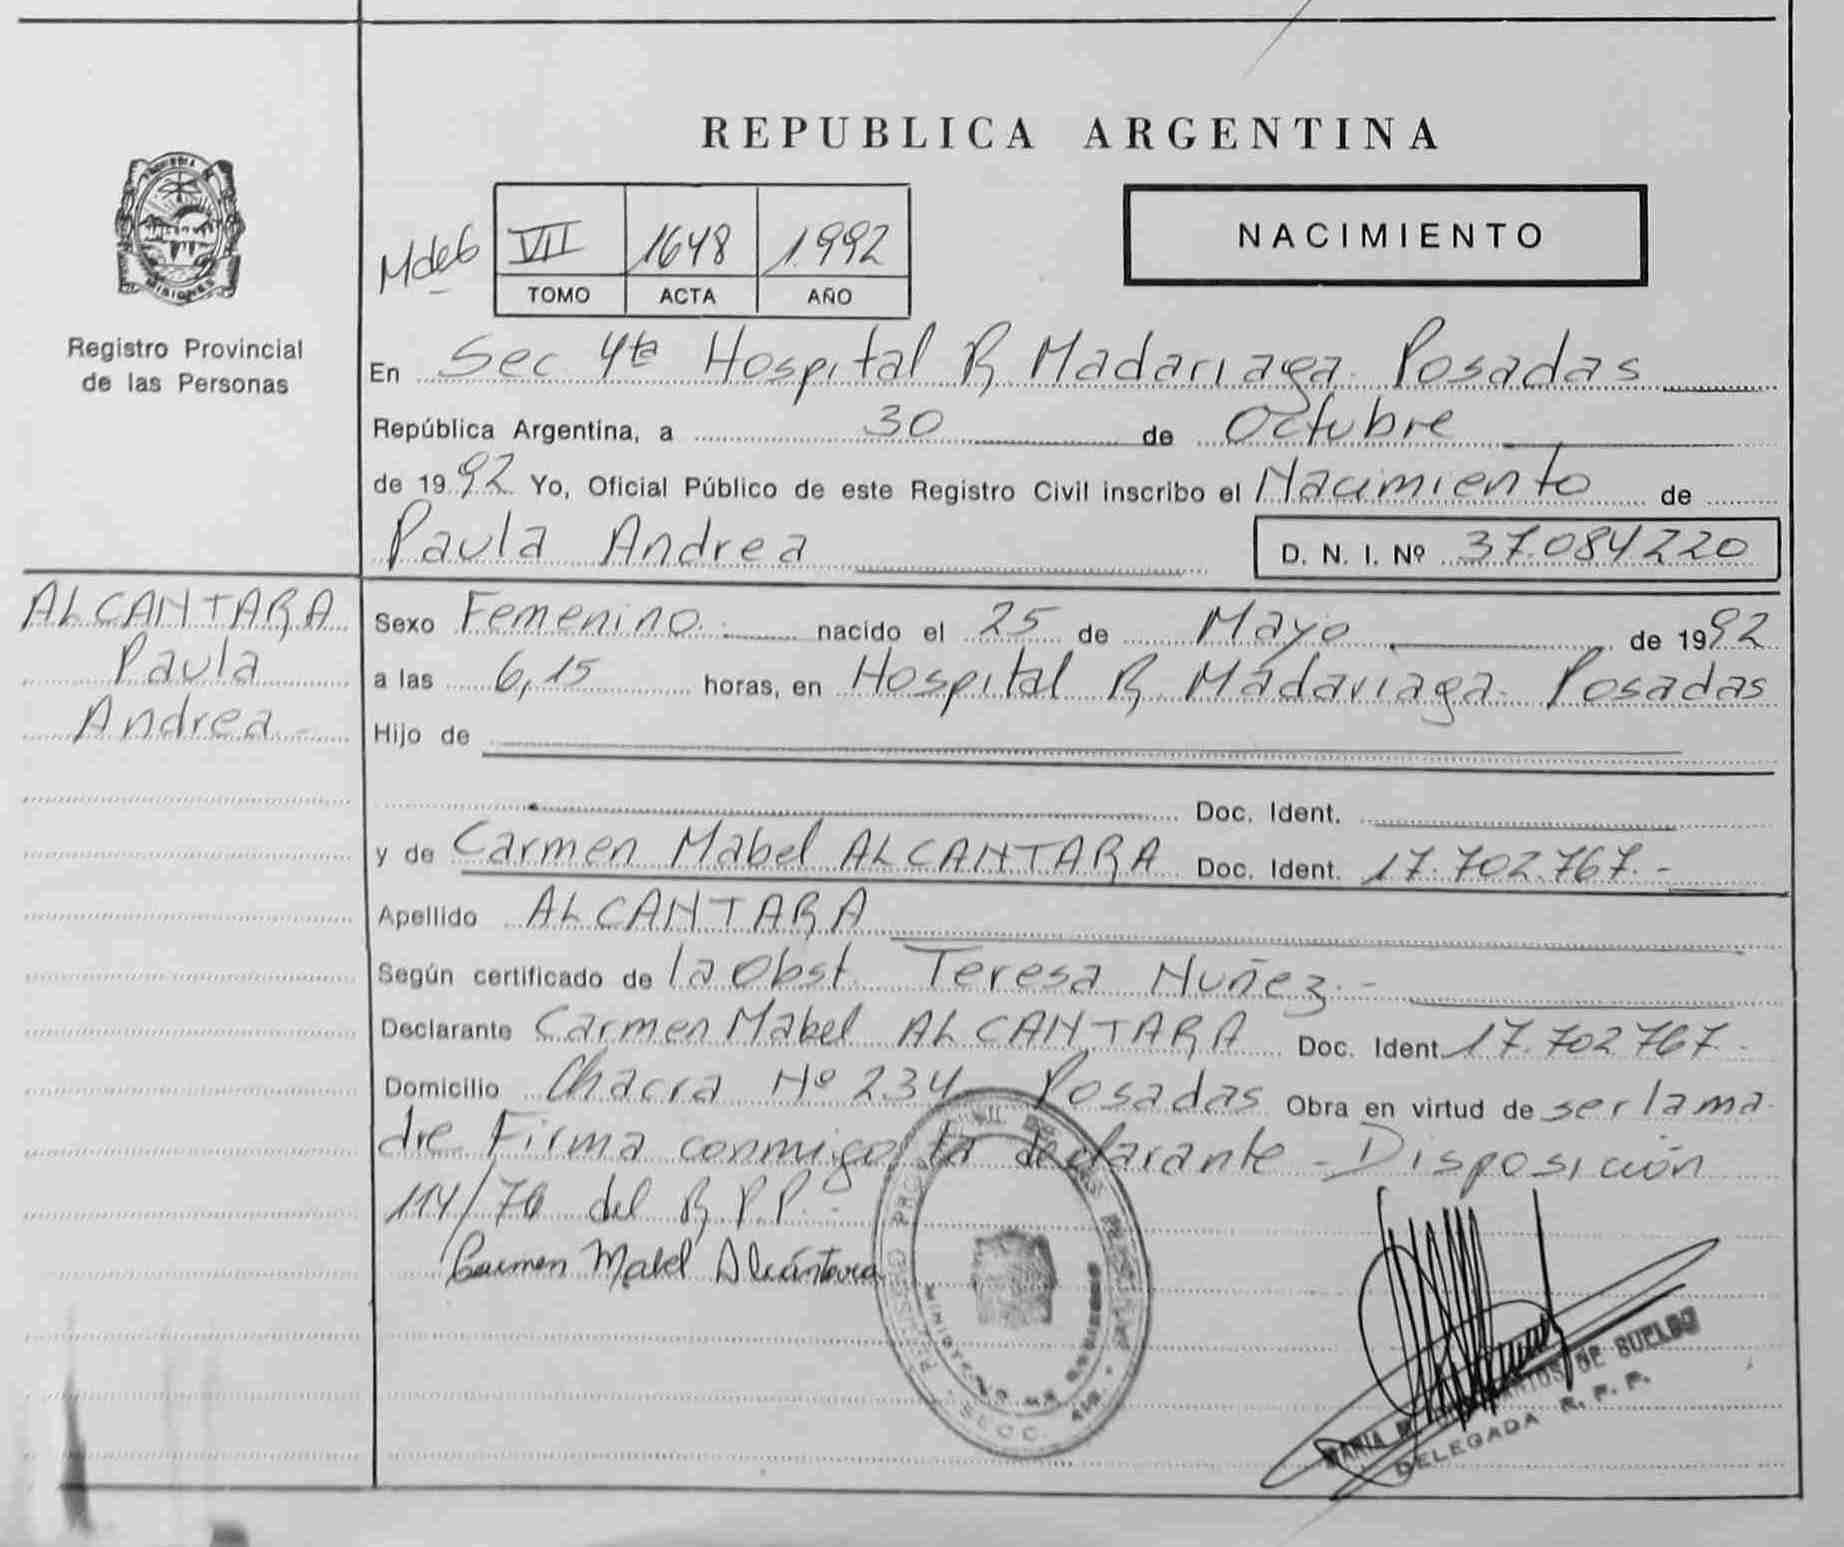 REPUBLICA ARGENTINA
MISIONES
Registro Provincial
de las Personas
VII 1648 1992
TOMO ACTA AÑO
NACIMIENTO
En Sec 4ta Hospital R Madariaga Posadas
República Argentina, a 30 de Octubre
de 1992 Yo, Oficial Público de este Registro Civil inscribo el Nacimiento de
Paula Andrea D. N. I. Nº 37.084220
ALCANTARA
Paula
Andrea.-
Sexo Femenino. nacido el 25 de Mayo de 1992
a las 6,15 horas, en Hospital R. Madariaga. Posadas
Hijo de
Doc. Ident.
y de Carmen Mabel ALCANTARA Doc. Ident. 17.702.767.-
Apellido ALCANTARA
Según certificado de la Obst. Teresa Nuñez.-
Declarante Carmen Mabel ALCANTARA Doc. Ident. 17.702767.
Domicilio Chacra Nº 234 Posadas Obra en virtud de ser la ma
dre Firma conmigo la declarante - Disposición
114/76 del R.P.P.-
Carmen Mabel Alcántara
DE BUELBO
DELEGADA R. P. P.